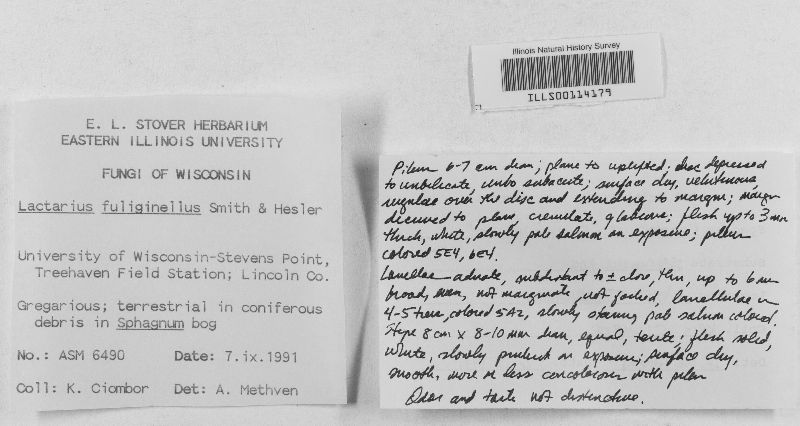 Illinois Natural History Survey
ILLS00114179
E. L. STOVER HERBARIUM
EASTERN ILLINOIS UNIVERSITY
FUNGI OF WISCONSIN
Lactarius fuliginellus Smith & Hesler
University of Wisconsin-Stevens Point,
Treehaven Field Station; Lincoln Co.
Gregarious; terrestrial in coniferous
debris in Sphagnum bog
No.: ASM 6490 Date: 7.ix.1991
Coll: K. Ciombor Det: A. Methven
Pileus 6-7 cm diam; plane to uplifted; disc depressed
to umbilicate, umbo subacute; surface dry, velutinous
rugulose over the disc and extending to margin; margin
decurved to plane, crenulate, glabrous; flesh up to 3 mm
thick, white, slowly pale salmon on exposure; pileus
colored 5E4, 6E4.
Lamellae adnate, subdistant to ± close, thin, up to 6 mm
broad, even, not marginate, not forked, lamellulae in
4-5 tiers, colored 5A2, slowly staining pale salmon colored.
Stipe 8 cm x 8-10 mm diam, equal, terete; flesh solid,
white, slowly pinkish on exposure; surface dry,
smooth, more or less concolorous with pileus
Odor and taste not distinctive.